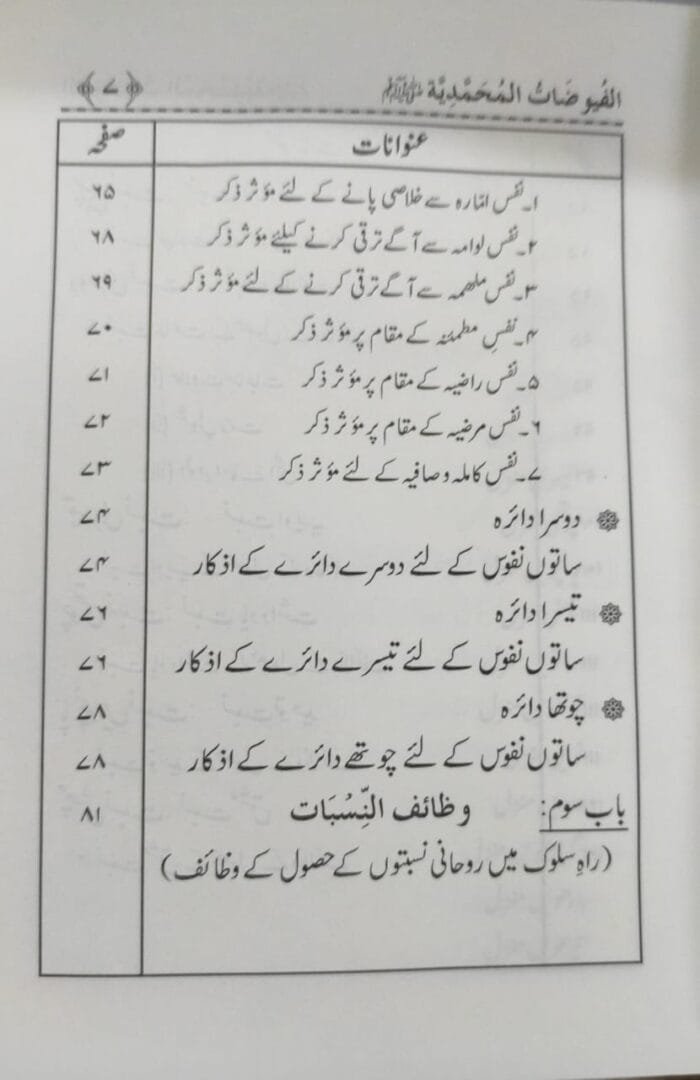 الفُیُوضَاتُ المُحَمَّدِیَّة ﷺ ﴿۷﴾
عنوانات صفحہ
۱۔ نفس امّارہ سے خلاصی پانے کے لئے مؤثر ذکر ۶۵
۲۔ نفس لوامہ سے آگے ترقی کرنے کیلئے مؤثر ذکر ۶۸
۳۔ نفس ملھمہ سے آگے ترقی کرنے کے لئے مؤثر ذکر ۶۹
۴۔ نفسِ مطمئنہ کے مقام پر مؤثر ذکر ۷۰
۵۔ نفس راضیہ کے مقام پر مؤثر ذکر ۷۱
۶۔ نفس مرضیہ کے مقام پر مؤثر ذکر ۷۲
۷۔ نفس کاملہ و صافیہ کے لئے مؤثر ذکر ۷۳
دوسرا دائرہ ۷۴
ساتوں نفوس کے لئے دوسرے دائرے کے اذکار ۷۴
تیسرا دائرہ ۷۶
ساتوں نفوس کے لئے تیسرے دائرے کے اذکار ۷۶
چوتھا دائرہ ۷۸
ساتوں نفوس کے لئے چوتھے دائرے کے اذکار ۷۸
باب سوم: وظائف النِّسْبَات ۸۱
(راہِ سلوک میں روحانی نسبتوں کے حصول کے وظائف)